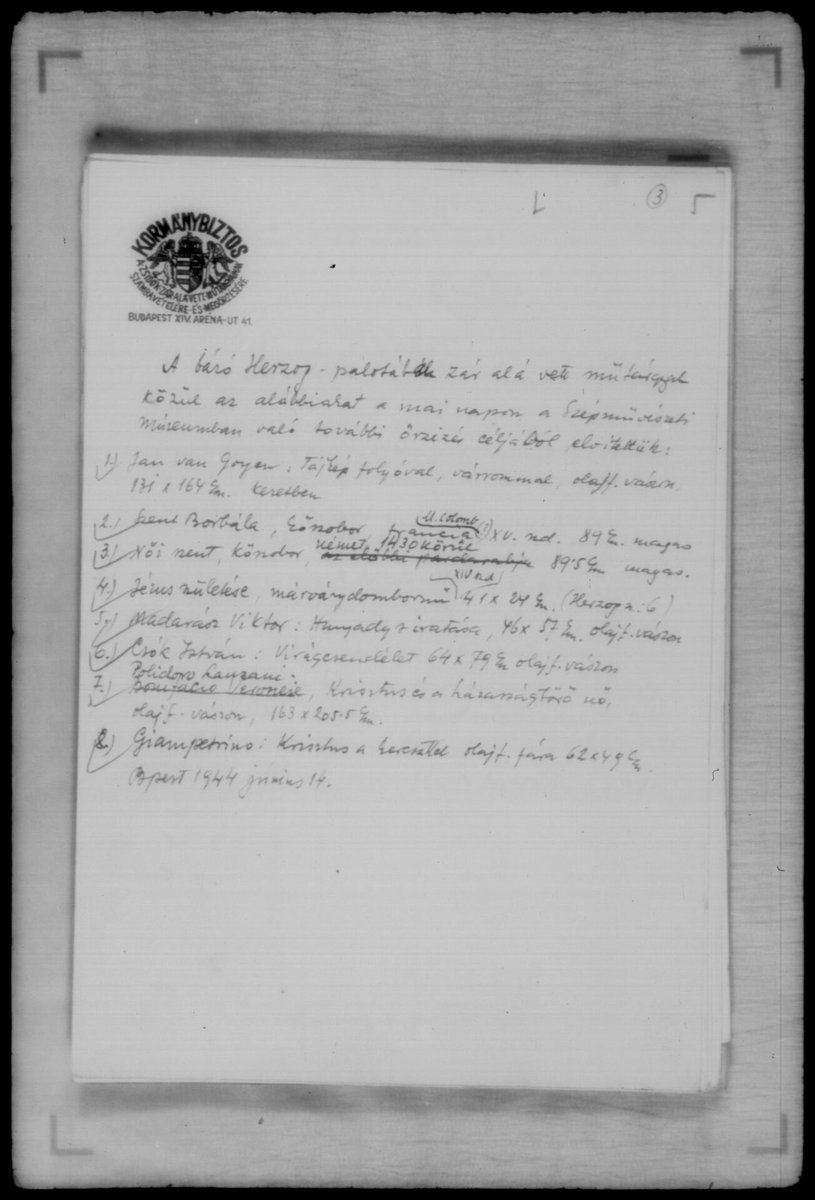 L ③ 5
KORMÁNYBIZTOS
A ZSIDÓK ZÁR ALÁ VETT MŰTÁRGYAINAK
SZÁMBAVÉTELÉRE ÉS MEGŐRZÉSÉRE
BUDAPEST XIV. ARÉNA-ÚT 41.
A báró Herzog-palotában zár alá vett műtárgyak
közül az alábbiakat a mai napon a Szépművészeti
Múzeumban való további őrzés céljából elvitettük:
1.) Jan van Goyen: Tájkép folyóval, várrommal, olajf. vászon,
131 x 164 cm. keretben
M. Colomb
2.) Szent Borbála, kőszobor, francia (?) XV. szd. 89 cm. magas
német, 1430 körül
3.) Női szent, kőszobor, az előbbi párdarabja 89·5 cm magas.
XIV szd
4.) Jézus születése, márványdombormű 41 x 24 cm. (Herzog n: 6)
5.) Madarász Viktor: Hunyady siratása, 46 x 57 cm. olajf. vászon
6.) Csók István: Virágcsendélet 64 x 79 cm olajf. vászon
Polidoro Lanzani:
7.) Bonifacio Veronese, Krisztus és a házasságtörő nő,
olajf. vászon, 163 x 205·5 cm.
8.) Giampetrino: Krisztus a kereszttel olajf. fára 62 x 49 cm.
Bpest 1944 június 14.